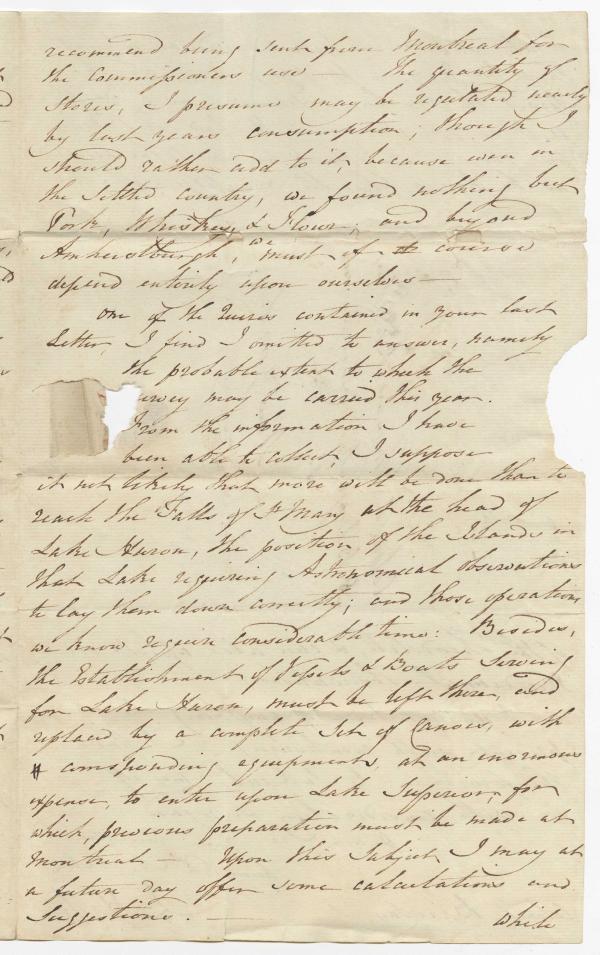 recommend being sent from Montreal for
the Commissioners use — The quantity of
Stores, I presume may be regulated nearly
by last years consumption; though I
should rather add to it, because even in
the settled country, we found nothing but
Pork, Whiskey, & Flour; and beyond
Amherstburgh, we must of course
depend entirely upon ourselves —
One of the Queries contained in your last
Letter, I find I omitted to answer, namely
the probable extent to which the
urvey may be carried this year.
From the information I have
been able to collect, I suppose
it not likely that more will be done than to
reach the Falls of St Mary at the head of
Lake Huron, the position of the Islands in
that Lake requiring Astronomical observations
to lay them down correctly; and those operations
we know require considerable time: Besides,
the Establishment of Vessels & Boats serving
for Lake Huron, must be left there, and
replaced by a complete Set of Canoes, with
corresponding equipment, at an enormous
expense, to enter upon Lake Superior, for
which, previous preparation must be made at
Montreal — Upon this Subject I may at
a future day offer some calculations and
Suggestions. —
while